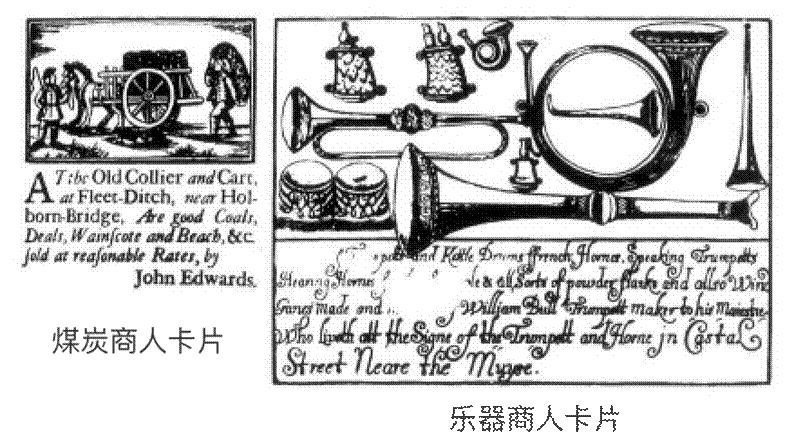 AT the Old Collier and Cart,
at Fleet-Ditch, near Hol-
born-Bridge, Are good Coals,
Deals, Wainſcote and Beach, &c.
ſold at reaſonable Rates, by
John Edwards.
煤炭商人卡片
and Kettle Drums ffrench Hornes, Speaking Trumpetts
Hearing Hornes & all Sorts of powder flasks and allso Wind
Guns made and William Bull Trumpett maker to his Maiestie
Who liveth att the Signe of the Trumpett and Horne in Castal
Street Neare the Muyse.
乐器商人卡片